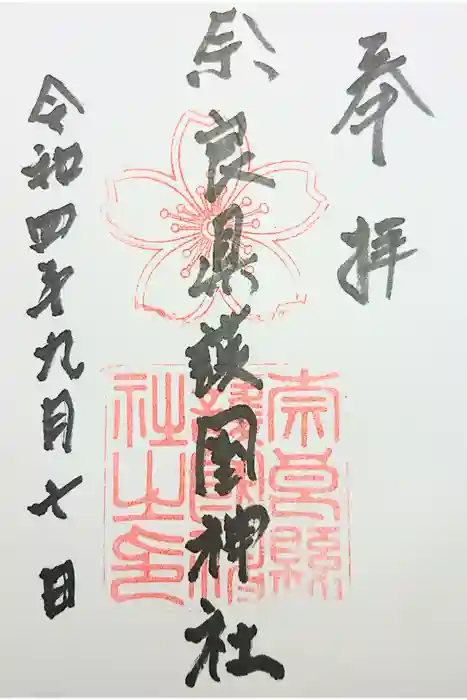 奉拝
奈良県護國神社
奈良縣
護國神
社之印
令和四年九月七日